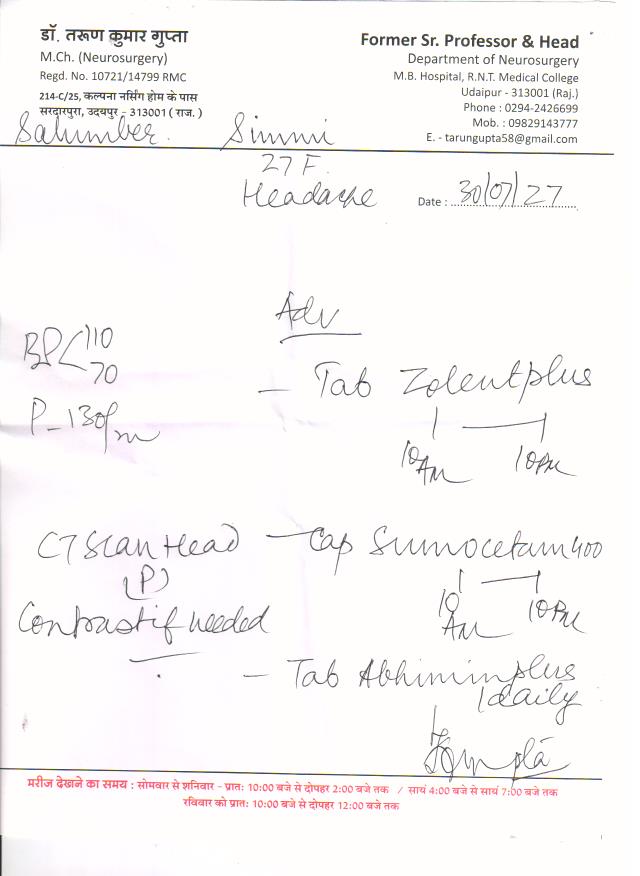 डॉ. तरूण कुमार गुप्ता
M.Ch. (Neurosurgery)
Regd. No. 10721/14799 RMC
214-C/25, कल्पना नर्सिंग होम के पास
सरदारपुरा, उदयपुर - 313001 ( राज. )
Former Sr. Professor & Head
Department of Neurosurgery
M.B. Hospital, R.N.T. Medical College
Udaipur - 313001 (Raj.)
Phone : 0294-2426699
Mob. : 09829143777
E. - tarungupta58@gmail.com
Salumber Simmi
27 F
Headache
Date : 30/07/27
Adv
BP 110
70
- Tab Zolent plus
P - 130/m
10 AM 10 PM
CT Scan Head
- Cap Sumocetam 400
(P)
10 AM 10 PM
Contrast if needed
- Tab Abhimin plus
1 daily
मरीज देखने का समय : सोमवार से शनिवार - प्रातः 10:00 बजे से दोपहर 2:00 बजे तक / सायं 4:00 बजे से सायं 7:00 बजे तक
रविवार को प्रातः 10:00 बजे से दोपहर 12:00 बजे तक